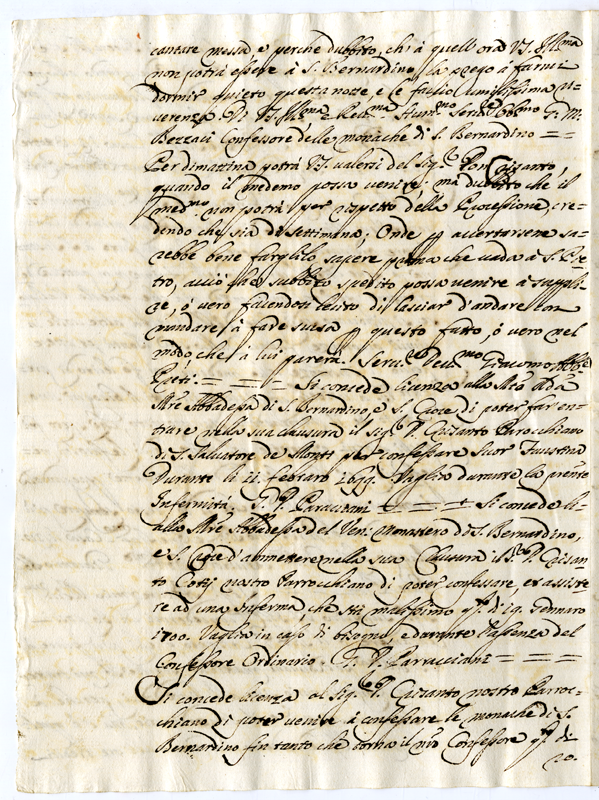 cantare messa, e perche dubbito, ch'à quell'ora VS. Illma
non potrà essere à S. Bernardino, la prego à farmi
dormir quieto questa notte, e le faccio umilissima ri=
verenza. Di VS. Illma e Revma Hummo Serre Obbmo G. M.
Bezzaci Confessore delle monache di S. Bernardino ==
Per dimattina potrà VS. valersi del Sigr Don Grisanto,
quando il medemo possa venire; mà dubbito che il
medmo non potrà per rispetto della Processione, cre=
dendo che sia di settimana; Onde p accertarsene sa=
rebbe bene farglilo sapere prima che vada à S. Pie=
tro, acciò che subbito spedito possa venire à suppli=
re, ò vero facendosi lecito di lasciar d'andare con
mandare à fade scusa p questo fatto, ò vero nel
modo, che à lui parerà. Serv. Devmo Giacomo
Preti. = = = Si concede licenza alla Mto Rda
Mre Abbadessa di S. Bernardino, e S. Croce di poter far en=
trare nella sua clausura il Sigr D. Grisanto Parocchiano
di S. Salvatore de Monti per confessare Suor Faustina
Durante li 11. febraro 1699. Vaglia durante la pnte
Infermità. G. P. Paracciani = = = = Si concede li=
alla Mre Abbadessa del Ven: Monastero di S. Bernardino,
e S. Croce d'ammettere nella sua Clausura il Sr D. Grisan=
to Cottj nostro Parrocchiano di poter confessare, et assiste=
re ad una Inferma che stà malissimo qto di 19. Gennaro
1700. Vaglia in caso di bisogno, e durante l'assenza del
Confessore Ordinario. G. P. Parracciani = = =
Si concede licenza al Sigr D. Grisanto nostro Parroc=
chiano di poter venire à confessare le monache di S.
Bernardino fin tanto che torna il nro Confessore qto di
20.